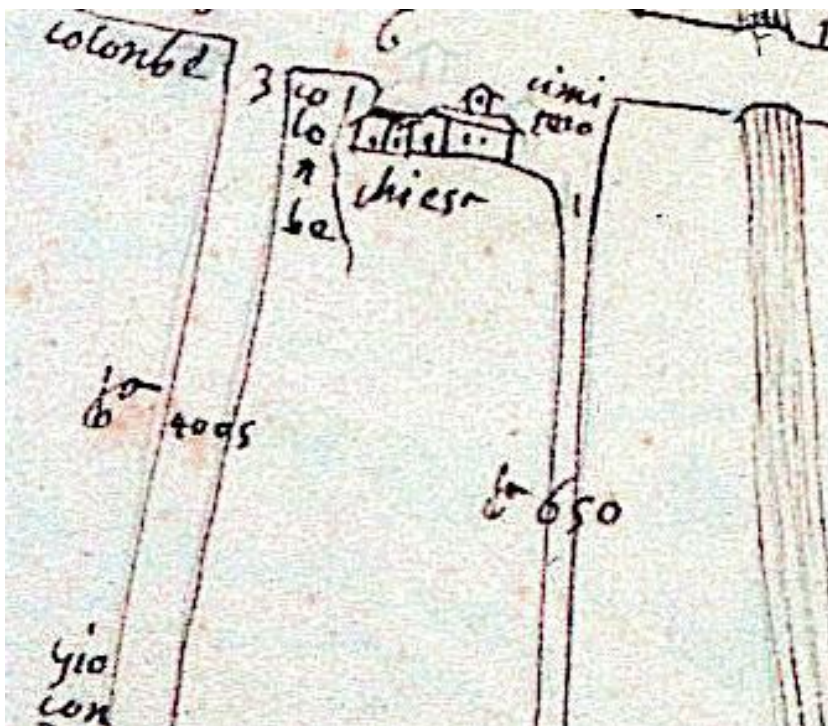 colonbe
6
3
co
lo
n
be
cimi
tero
chiesa
1
4095
650
gio
con